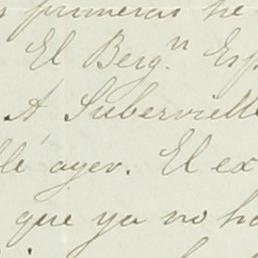 primeras he
El Berg.n Esp
A Subervielle
llé ayer. El ex
que ya no ha